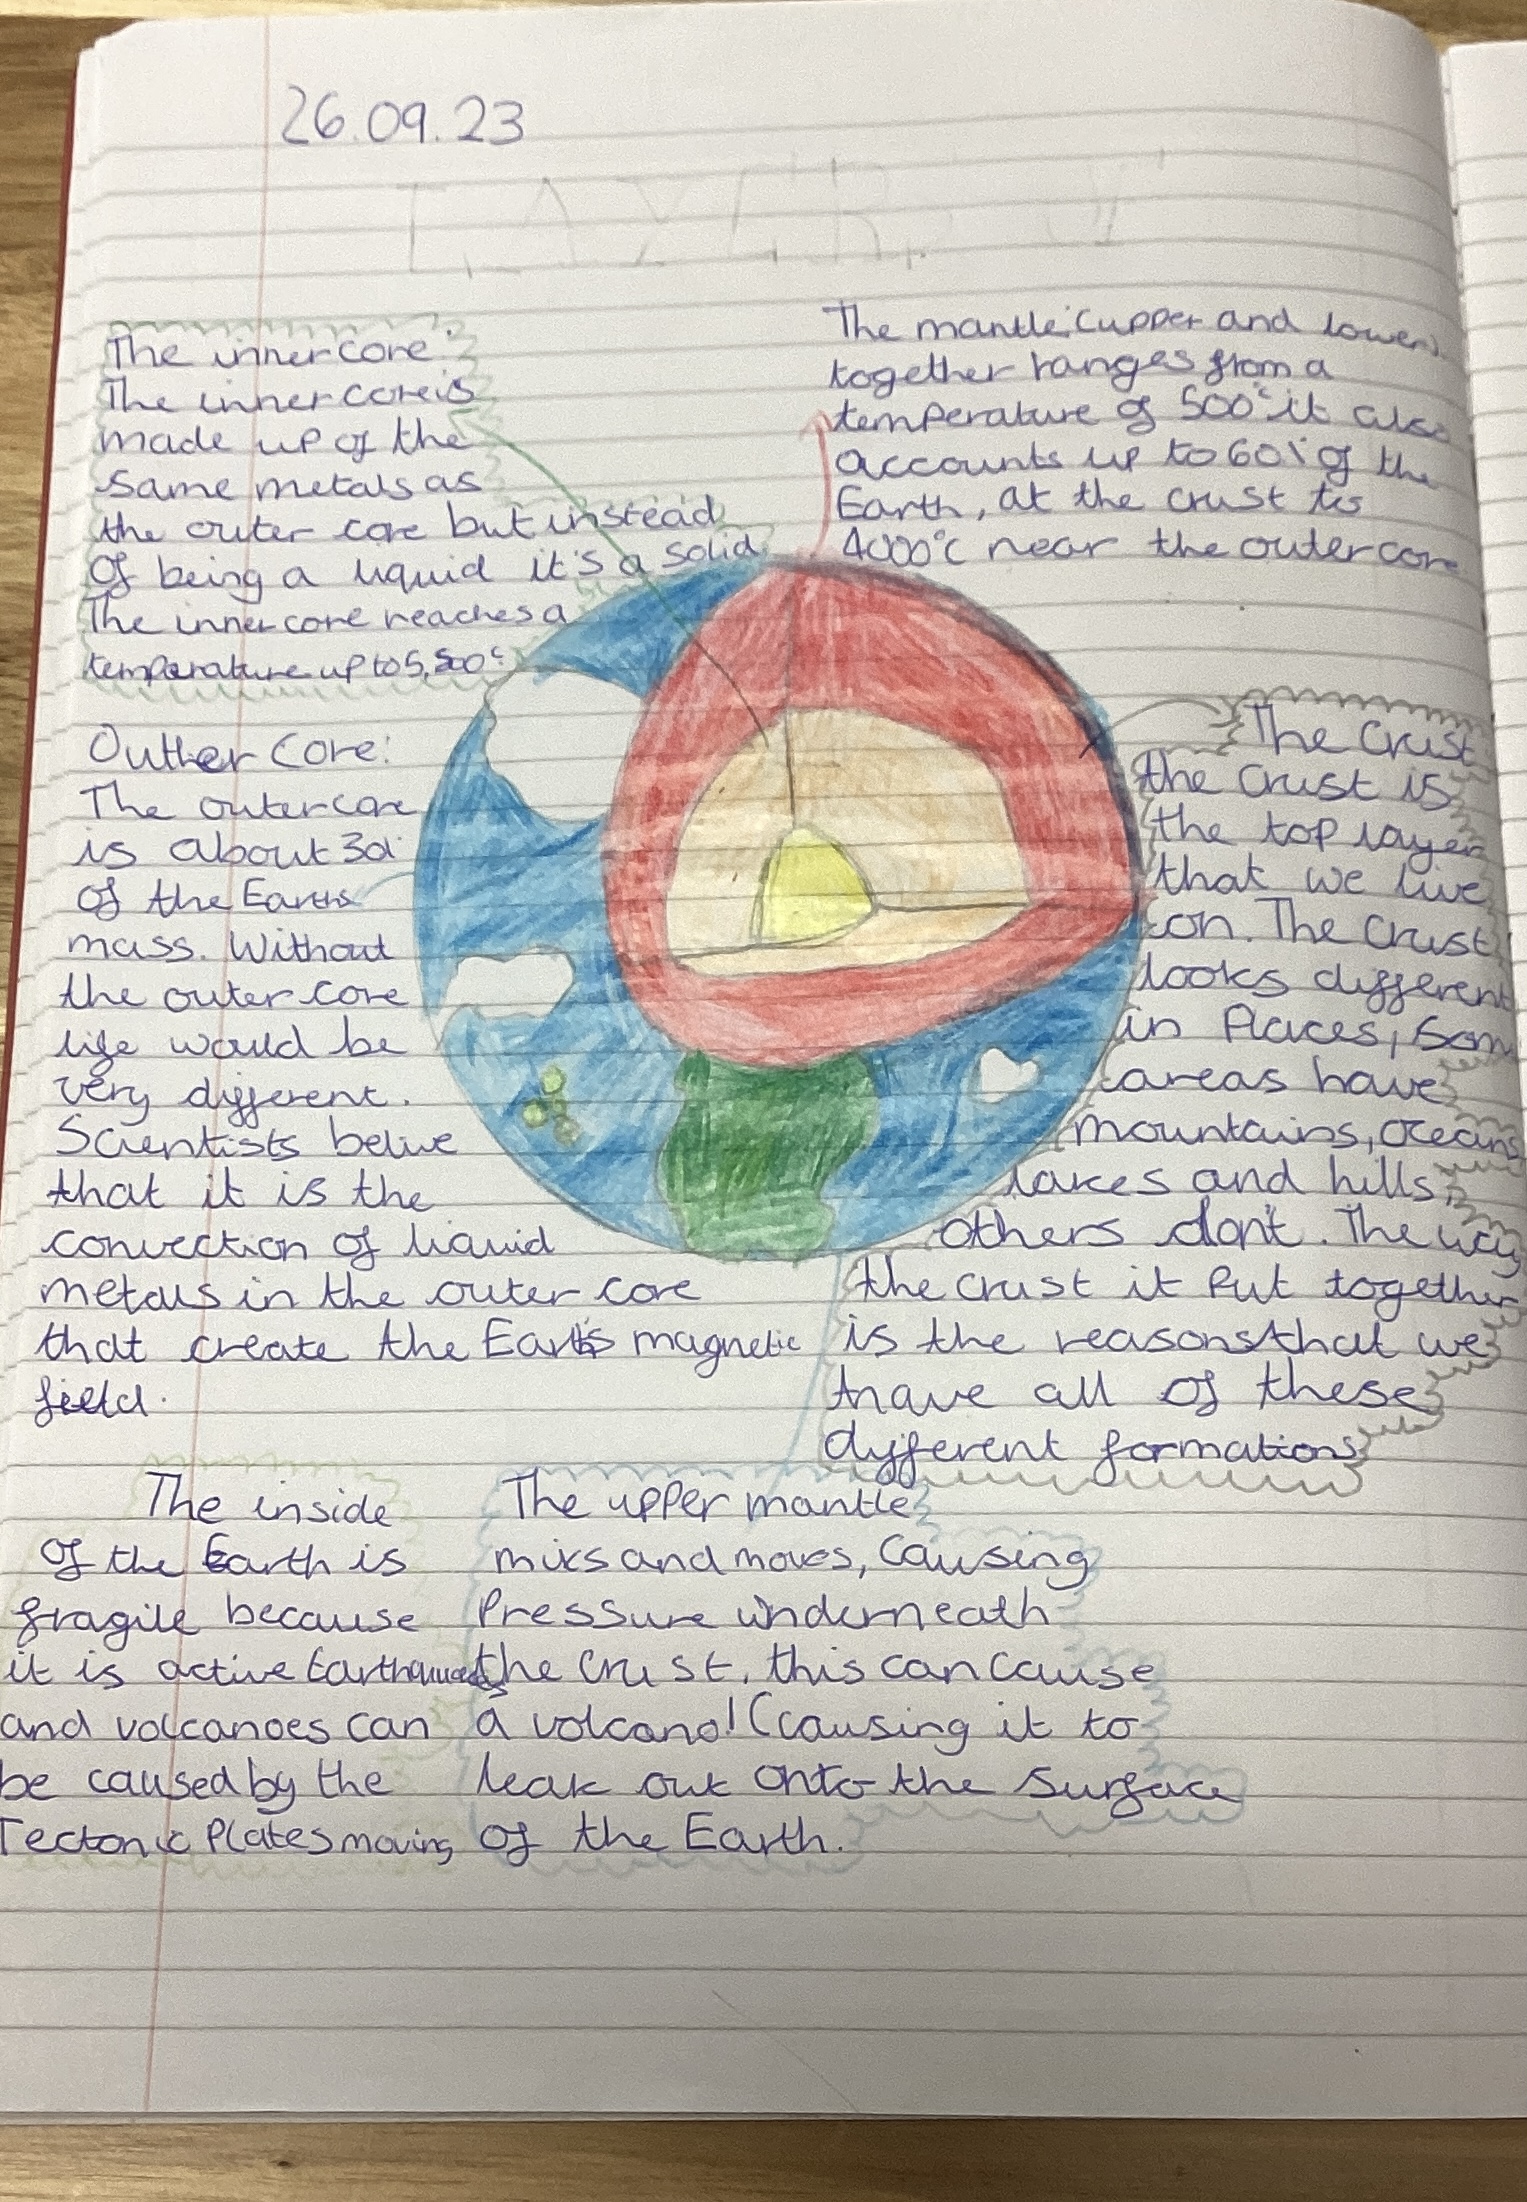 26.09.23
LAYER
The inner core:
The inner core is
made up of the
same metals as
the outer core but instead
Of being a liquid it's a solid
The inner core reaches a
temperature up to 5,500°c
The mantle: (upper and lower)
together ranges from a
temperature of 500°c it also
accounts up to 60% of the
Earth, at the crust to
4000°c near the outer core
Outher Core:
The outer core
is about 3d
of the Earths
mass. Without
the outer core
life would be
very different.
Scientists belive
that it is the
convection of liquid
metals in the outer core
that create the Earth's magnetic
field.
The Crust
the crust is
the top layer
that we live
on. The Crust
looks different
in Places, som
areas have
mountains, oceans
lakes and hills,
others don't. The way
the crust it Put together
is the reasons that we
have all of these
different formations
The inside
of the Earth is
fragile because
it is active Earthquakes
and volcanoes can
be caused by the
Tectonic Plates moving
The upper mantle
mixs and moves, Causing
Pressure underneath
the Crust, this can cause
a volcano! (causing it to
leak out onto the surface
of the Earth.